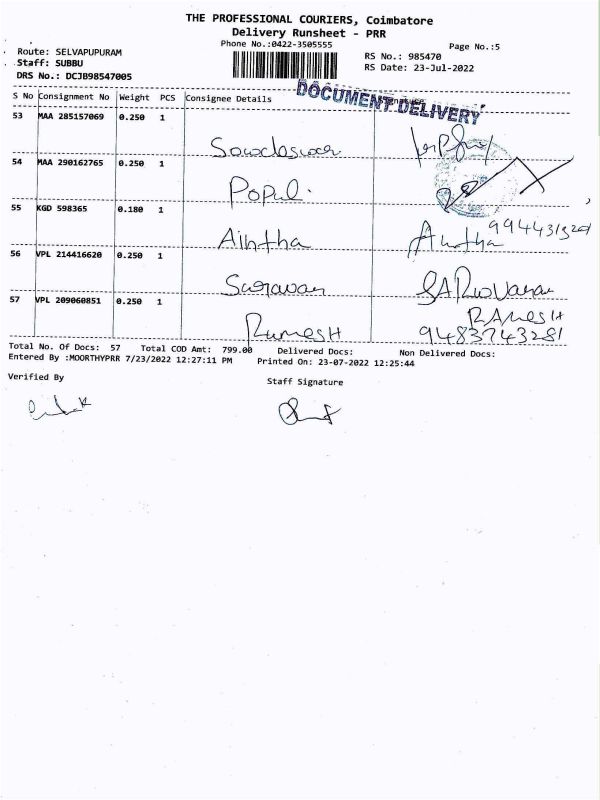 THE PROFESSIONAL COURIERS, Coimbatore
Delivery Runsheet - PRR
Phone No.:0422-3505555
Page No.:5
Route: SELVAPUPURAM
RS No.: 985470
Staff: SUBBU
RS Date: 23-Jul-2022
DRS No.: DCJB98547005
DOCUMENT DELIVERY
S No Consignment No Weight PCS Consignee Details
53 MAA 285157069 0.250 1
54 MAA 290162765 0.250 1
Popul.
55 KGD 598365 0.180 1
Aintha Anitha
56 VPL 214416620 0.250 1
Saravan SARavanan
57 VPL 209060851 0.250 1
RAMESH
RumesH 9483743281
Total No. Of Docs: 57 Total COD Amt: 799.00 Delivered Docs: Non Delivered Docs:
Entered By :MOORTHYPRR 7/23/2022 12:27:11 PM Printed On: 23-07-2022 12:25:44
Verified By Staff Signature